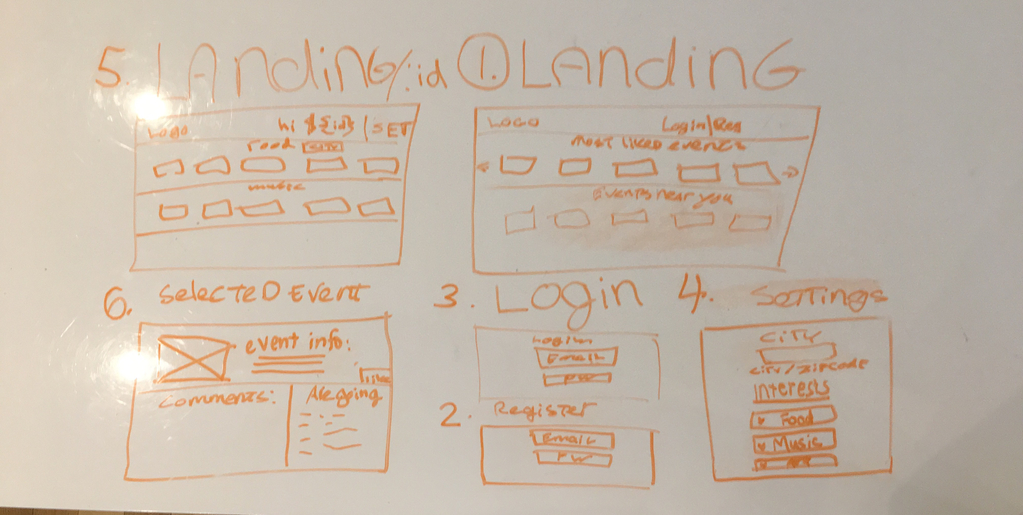 5. LANDING/:id
LOGO hi ${id} | SET
Food
music
①. LANDING
LOGO Login/Reg
most liked events
Events near you
6. Selected Event
event info:
Comments:
3. Login
Login
Email
PW
2. Register
Email
PW
4. Settings
City
city/zipcode
Interests
Food
Music